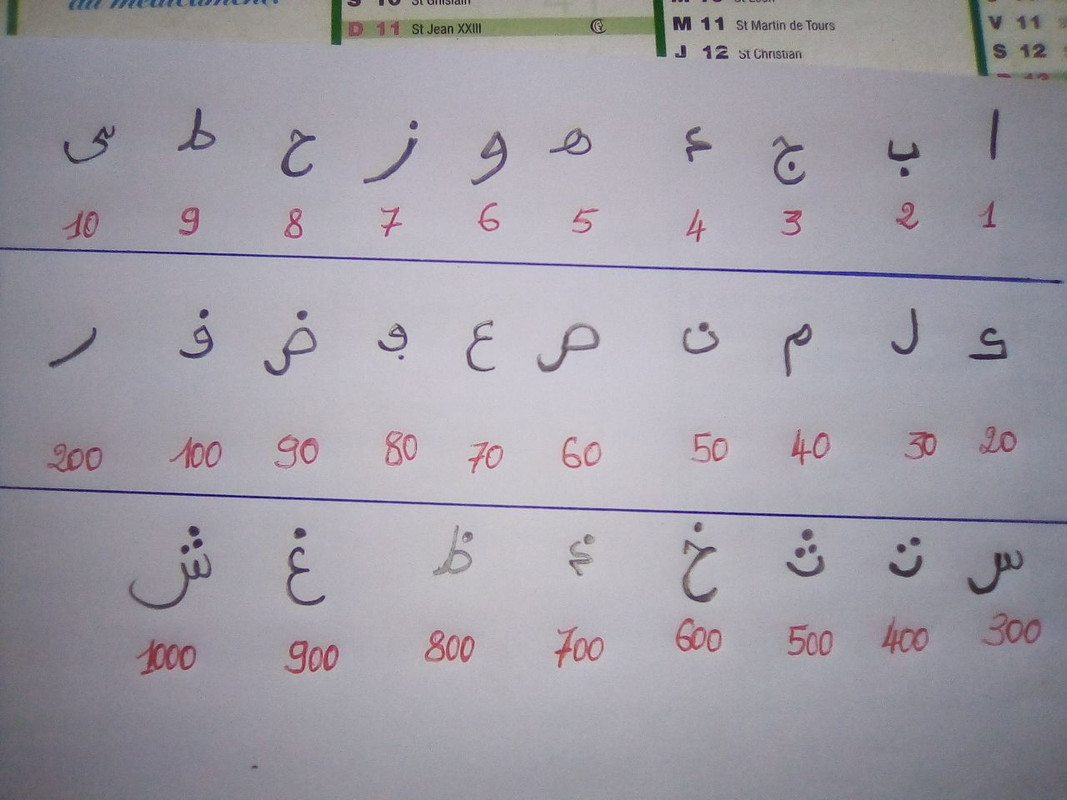 du médicament.
S 10 St Ghislain
D 11 St Jean XXIII
M 11 St Martin de Tours
J 12 St Christian
V 11
S 12
ا ب ج د ه و ز ح ط ى
1 2 3 4 5 6 7 8 9 10
ك ل م ن ص ع ڢ ض ڧ ر
20 30 40 50 60 70 80 90 100 200
س ت ث خ ذ ظ غ ش
300 400 500 600 700 800 900 1000